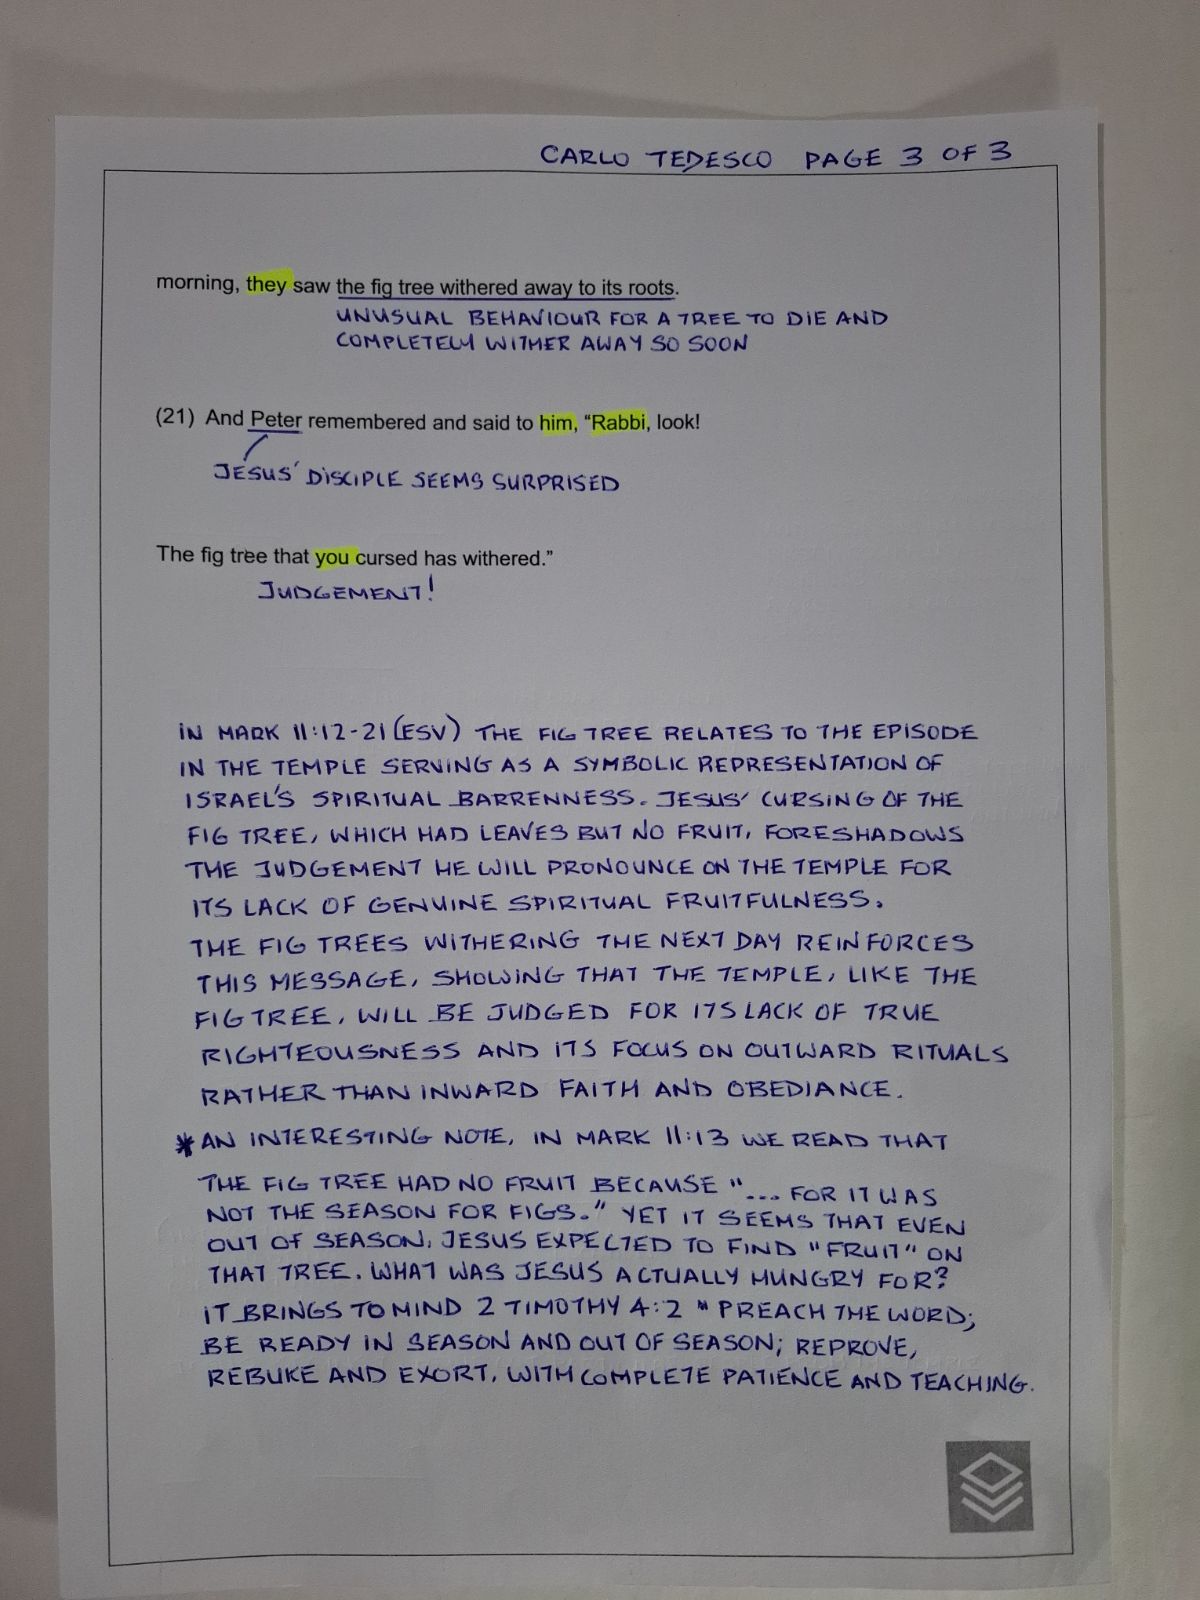 CARLO TEDESCO PAGE 3 OF 3
morning, they saw the fig tree withered away to its roots.
UNUSUAL BEHAVIOUR FOR A TREE TO DIE AND
COMPLETELY WITHER AWAY SO SOON
(21) And Peter remembered and said to him, “Rabbi, look!
JESUS' DISCIPLE SEEMS SURPRISED
The fig tree that you cursed has withered.”
JUDGEMENT!
IN MARK 11:12-21 (ESV) THE FIG TREE RELATES TO THE EPISODE
IN THE TEMPLE SERVING AS A SYMBOLIC REPRESENTATION OF
ISRAEL'S SPIRITUAL BARRENNESS. JESUS' CURSING OF THE
FIG TREE, WHICH HAD LEAVES BUT NO FRUIT, FORESHADOWS
THE JUDGEMENT HE WILL PRONOUNCE ON THE TEMPLE FOR
ITS LACK OF GENUINE SPIRITUAL FRUITFULNESS.
THE FIG TREES WITHERING THE NEXT DAY REINFORCES
THIS MESSAGE, SHOWING THAT THE TEMPLE, LIKE THE
FIG TREE, WILL BE JUDGED FOR ITS LACK OF TRUE
RIGHTEOUSNESS AND ITS FOCUS ON OUTWARD RITUALS
RATHER THAN INWARD FAITH AND OBEDIANCE.
* AN INTERESTING NOTE, IN MARK 11:13 WE READ THAT
THE FIG TREE HAD NO FRUIT BECAUSE "... FOR IT WAS
NOT THE SEASON FOR FIGS." YET IT SEEMS THAT EVEN
OUT OF SEASON, JESUS EXPECTED TO FIND "FRUIT" ON
THAT TREE. WHAT WAS JESUS ACTUALLY HUNGRY FOR?
IT BRINGS TO MIND 2 TIMOTHY 4:2 " PREACH THE WORD;
BE READY IN SEASON AND OUT OF SEASON; REPROVE,
REBUKE AND EXORT, WITH COMPLETE PATIENCE AND TEACHING.